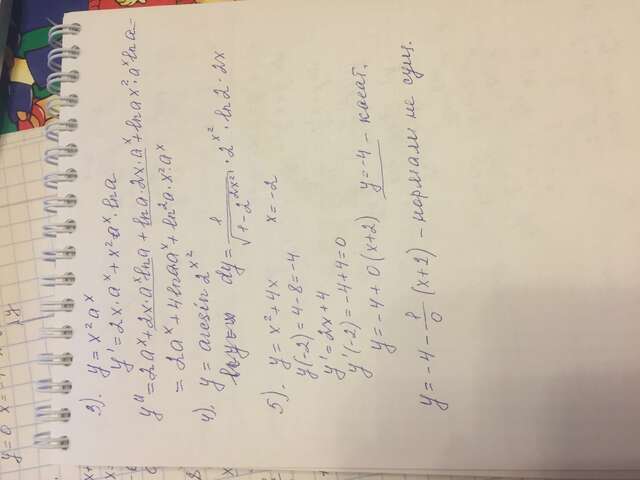 3). y = x² aˣ
y' = 2x·aˣ + x²·aˣ·ln a
y'' = 2aˣ + 2x·aˣ ln a + ln a·2x·aˣ + ln a x²·aˣ ln a =
= 2aˣ + 4 ln a aˣ + ln² a·x²·aˣ
4). y = arcsin 2^x²
dy = 1/√(1-2^2x²) · 2^x² · ln 2 · 2x
5). y = x² + 4x x = -2
y(-2) = 4 - 8 = -4
y' = 2x + 4
y'(-2) = -4 + 4 = 0
y = -4 + 0 (x+2) y = -4 - касат.
y = -4 - 1/0 (x+2) - нормали не сущ.